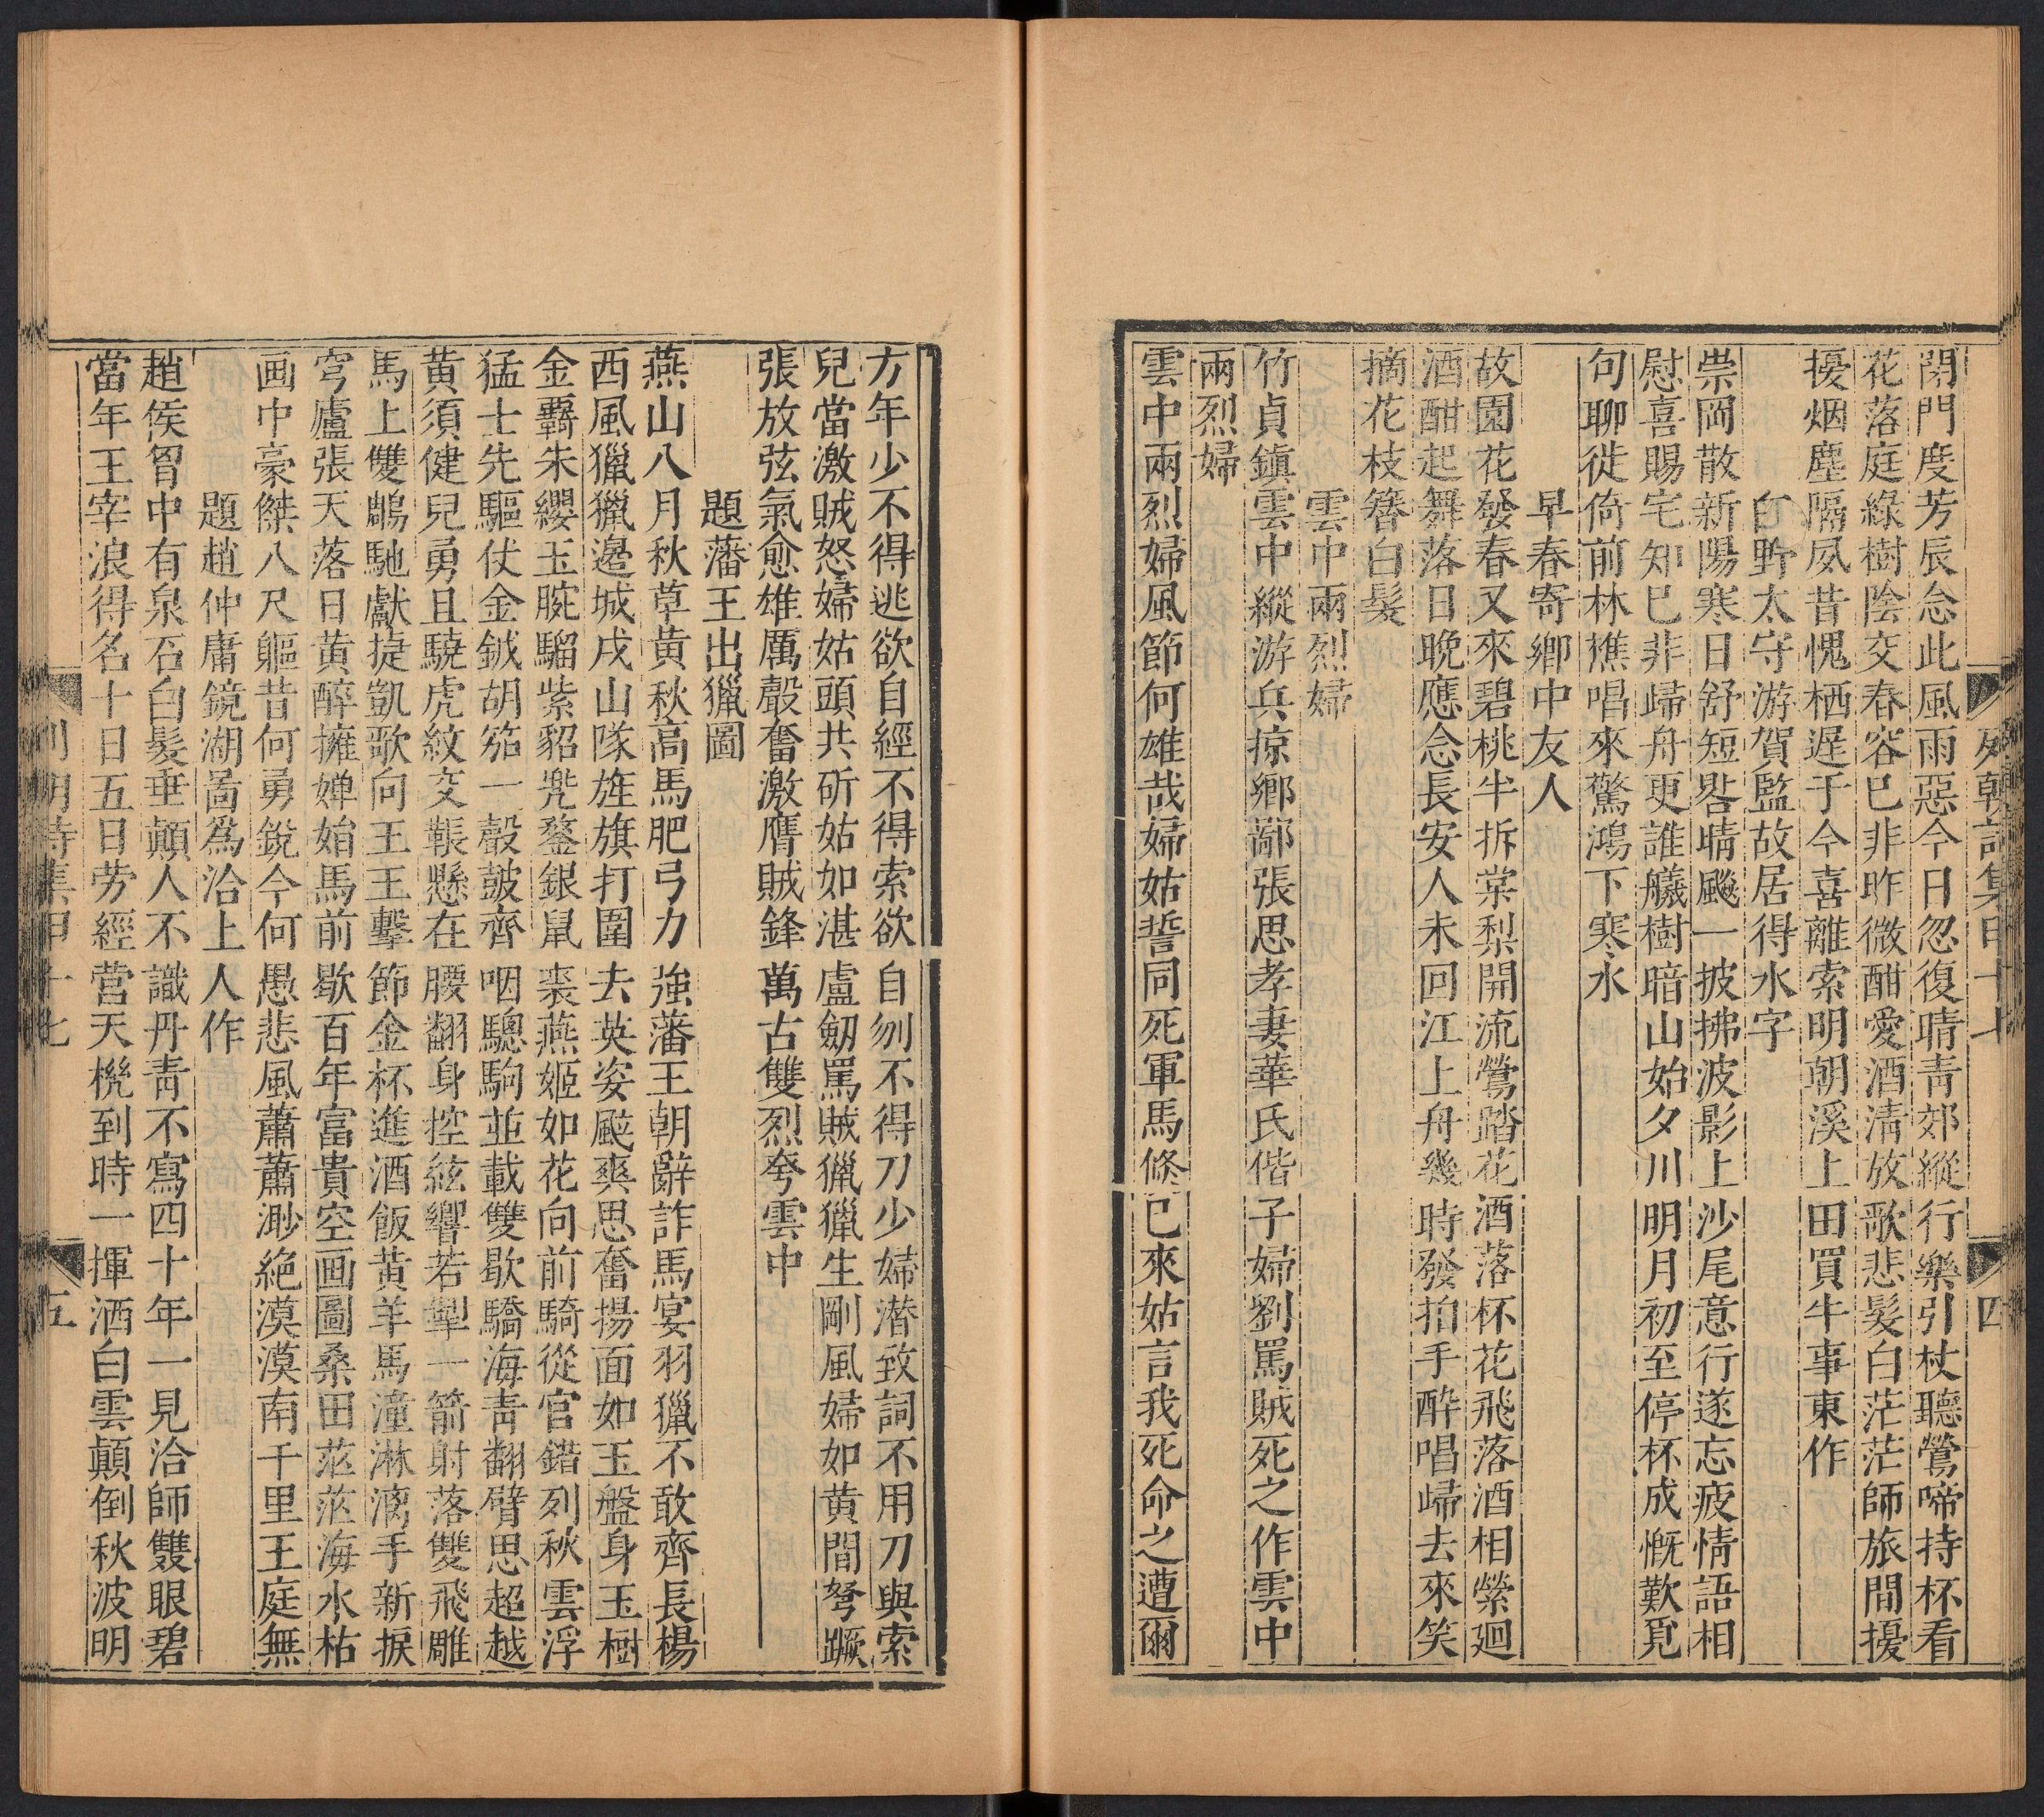 列朝詩集甲十七
四
閉門度芳辰念此風雨惡今日忽復晴青郊縱行樂引杖聽鶯啼持杯看
花落庭綠樹陰交春容已非昨微酣愛酒清放歌悲髮白茫茫師旅間擾
擾烟塵隔夙昔愧栖遲于今喜離索明朝溪上田買牛事東作
白野太守游賀監故居得水字
崇岡散新陽寒日舒短晷晴颷一披拂波影上沙尾意行遂忘疲情語相
慰喜賜宅知已非歸舟更誰艤樹暗山始夕川明月初至停杯成慨歎覓
句聊徙倚前林樵唱來驚鴻下寒水
早春寄鄉中友人
故園花發春又來碧桃半拆棠梨開流鶯踏花酒落杯花飛落酒相縈廻
酒酣起舞落日晚應念長安人未回江上舟幾時發拍手醉唱歸去來笑
摘花枝簪白髮
雲中兩烈婦
竹貞鎮雲中縱游兵掠鄉鄙張思孝妻華氏偕子婦劉罵賊死之作雲中
兩烈婦
雲中兩烈婦風節何雄哉婦姑誓同死軍馬倏已來姑言我死命之遭爾
方年少不得逃欲自經不得索欲自刎不得刀少婦潛致詞不用刀與索
兒當激賊怒婦姑頭共斫姑如湛盧劒罵賊獵獵生剛風婦如黃間弩蹶
張放弦氣愈雄厲聲奮激膺賊鋒萬古雙烈夸雲中
題藩王出獵圖
燕山八月秋草黃秋高馬肥弓力強藩王朝辭詐馬宴羽獵不敢齊長楊
西風獵獵邊城戌山隊旌旗打圍去英姿颯爽思奮揚面如玉盤身玉樹
金羈朱纓玉腕騮紫貂兠鍪銀鼠裘燕姬如花向前騎從官錯列秋雲浮
猛士先驅仗金鉞胡笳一聲鼓齊咽驄駒並載雙歇驕海青翻臂思超越
黃須健兒勇且驍虎紋交韔懸在腰翻身控絃響若犁一箭射落雙飛雕
馬上雙鵰馳獻㨗凱歌向王王擊節金杯進酒飯黃羊馬湩淋漓手新捩
穹廬張天落日黃醉擁嬋姢馬前歇百年富貴空画圖桑田茫茫海水枯
画中豪傑八尺軀昔何勇銳今何愚悲風蕭蕭渺絕漠漠南千里王庭無
題趙仲庸鏡湖啚為洽上人作
趙侯胷中有泉石白髮垂顛人不識丹青不寫四十年一見洽師雙眼碧
當年王宰浪得名十日五日勞經營天機到時一揮洒白雲顛倒秋波明
列朝詩集甲十七
五